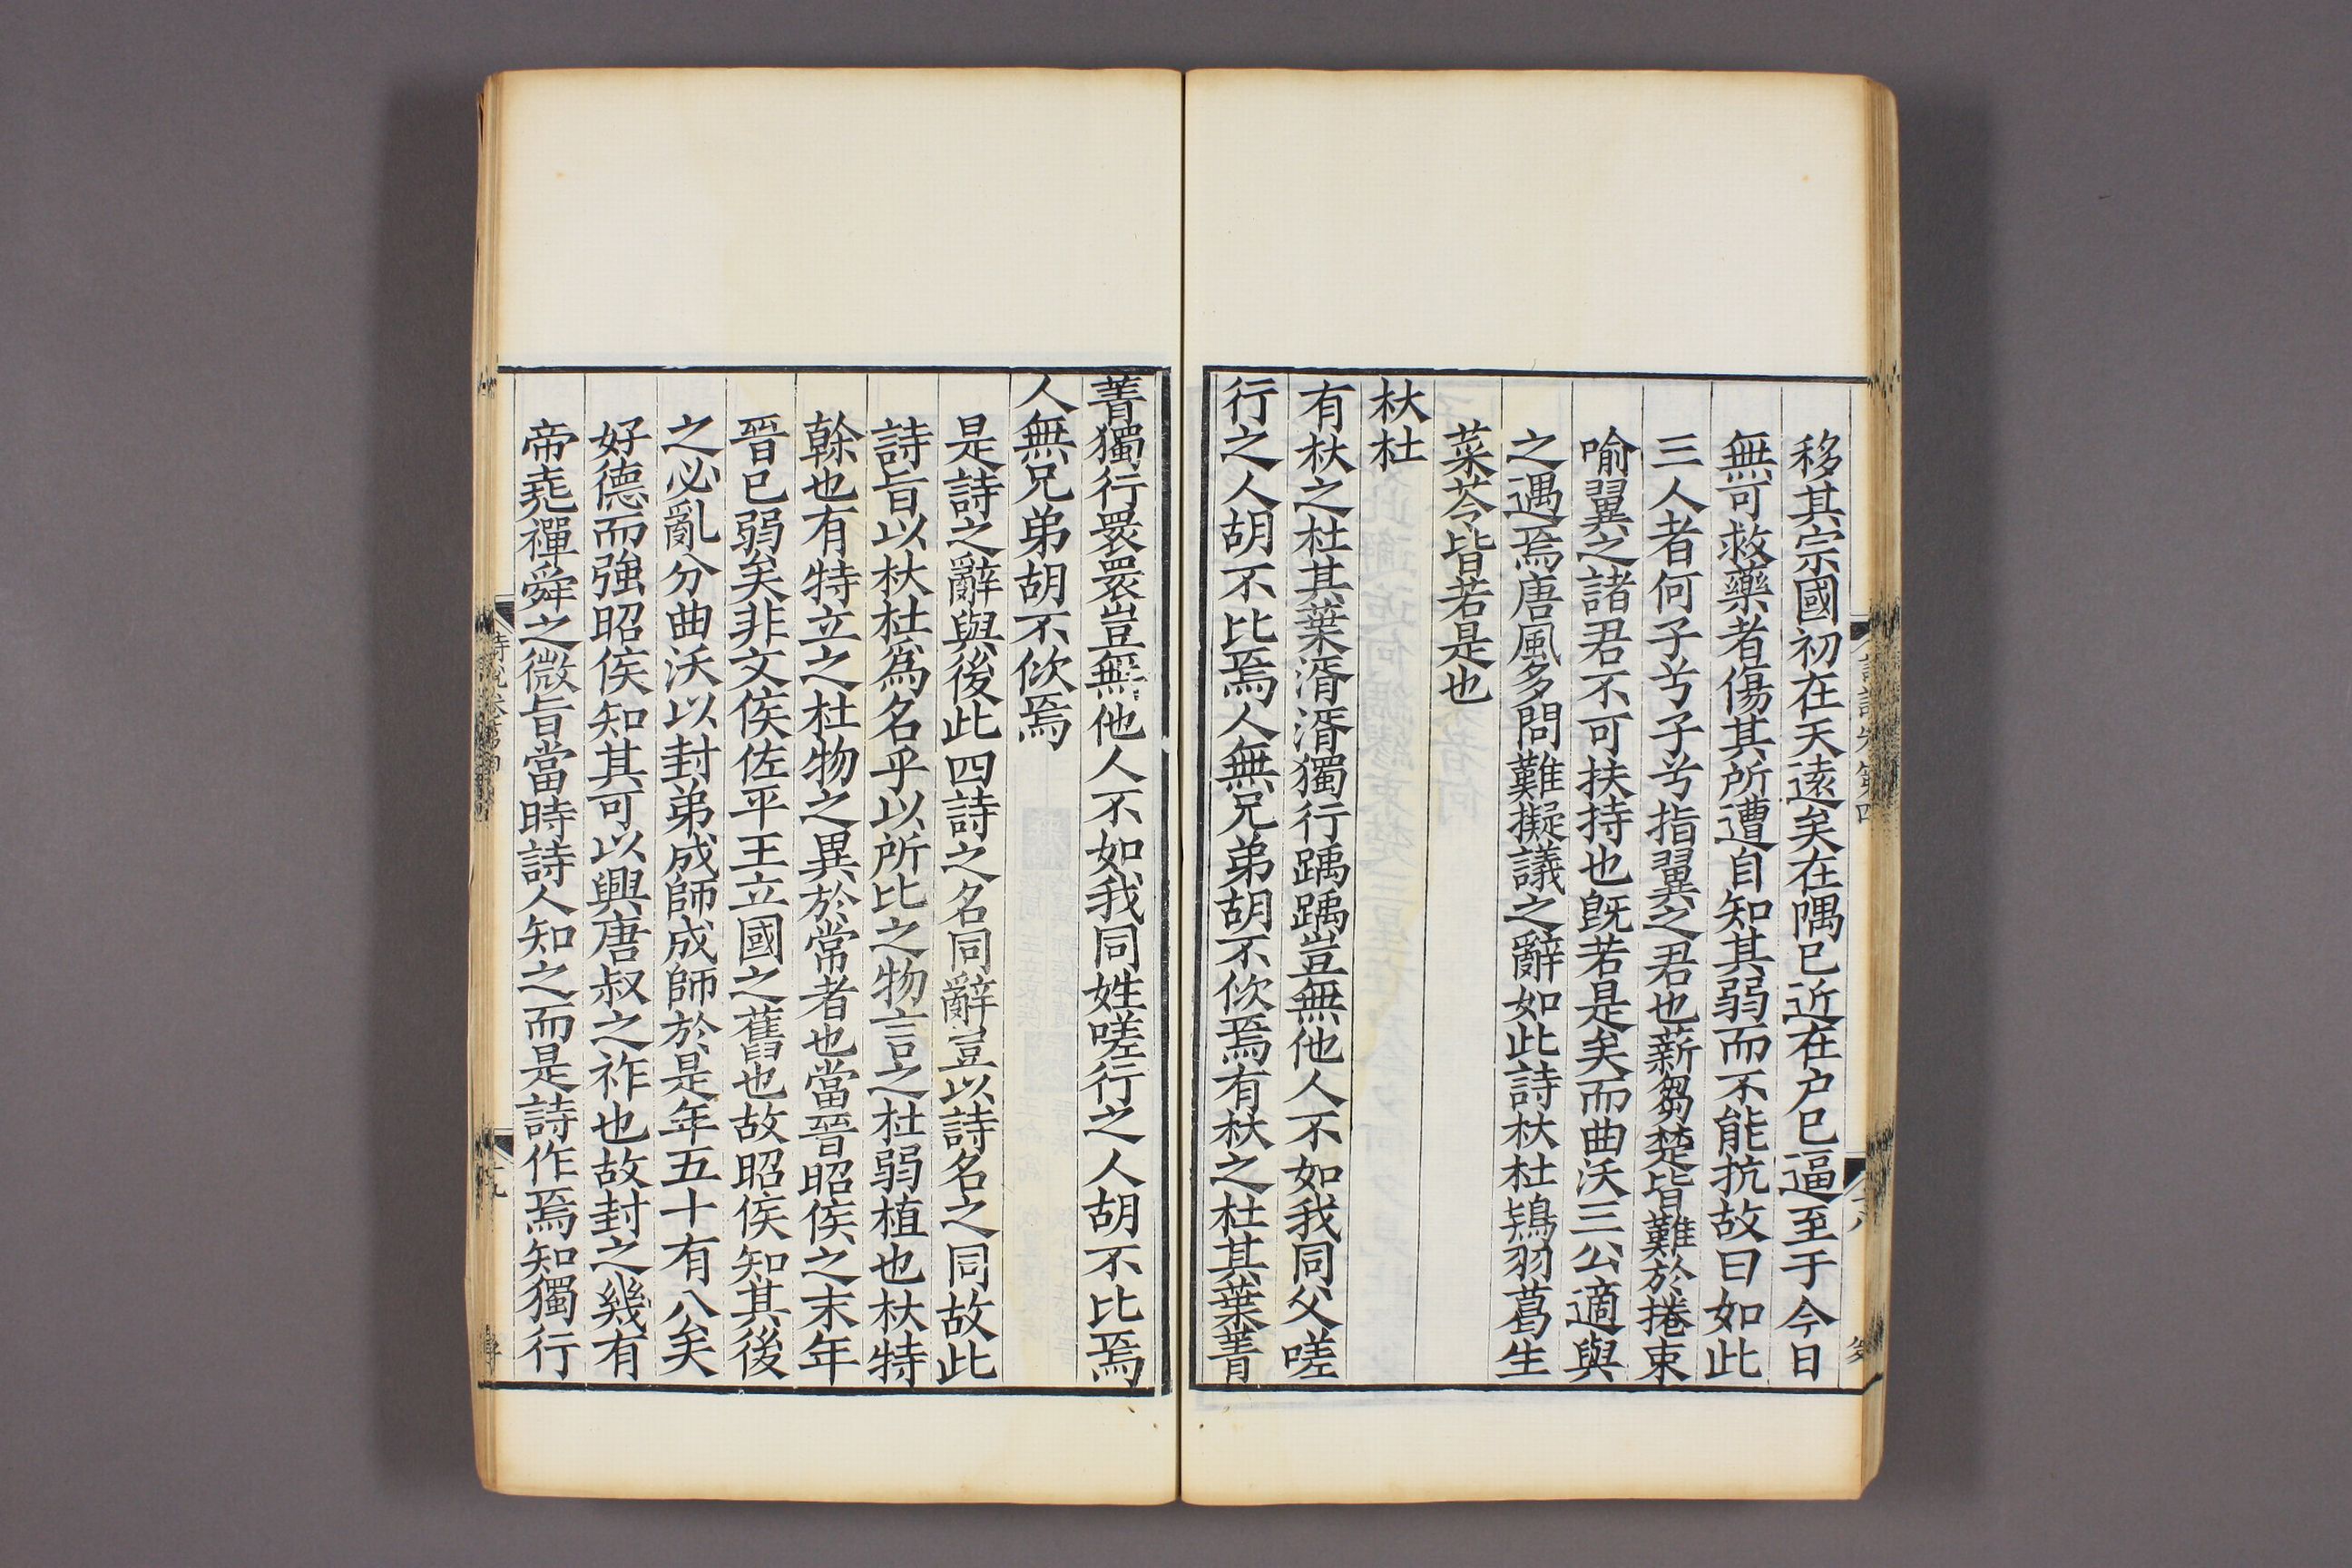 移其宗國初在天遠矣在隅已近在户已逼至于今日
無可救藥者傷其所遭自知其弱而不能抗故曰如此
三人者何子兮子兮指翼之君也薪芻楚皆難於捲束
喻翼之諸君不可扶持也既若是矣而曲沃三公適與
之遇焉唐風多問難擬議之辭如此詩杕杜鴇羽葛生
菜苓皆若是也
杕杜
有杕之杜其葉湑湑獨行踽踽豈無他人不如我同父嗟
行之人胡不比焉人無兄弟胡不佽焉有杕之杜其葉菁
菁獨行睘睘豈無他人不如我同姓嗟行之人胡不比焉
人無兄弟胡不佽焉
是詩之辭與後此四詩之名同辭豈以詩名之同故此
詩旨以杕杜為名乎以所比之物言之杜弱植也杕特
榦也有特立之杜物之異於常者也當晉昭侯之末年
晉已弱矣非文侯佐平王立國之舊也故昭侯知其後
之必亂分曲沃以封弟成師成師於是年五十有八矣
好德而強昭侯知其可以興唐叔之祚也故封之幾有
帝堯禪舜之微旨當時詩人知之而是詩作焉知獨行
詩說卷第四
十九